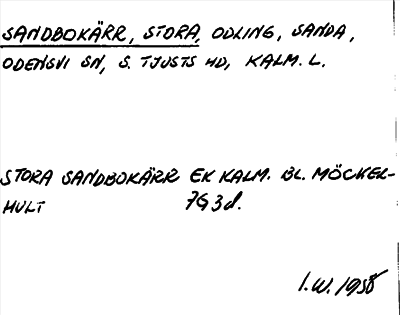 SANDBOKÄRR, STORA, ODLING, SANDA,
ODENSVI SN, S. TJUSTS HD, KALM. L.
STORA SANDBOKÄRR EK KALM. BL. MÖCKEL-
HULT 7G3d.
I.W. 1958